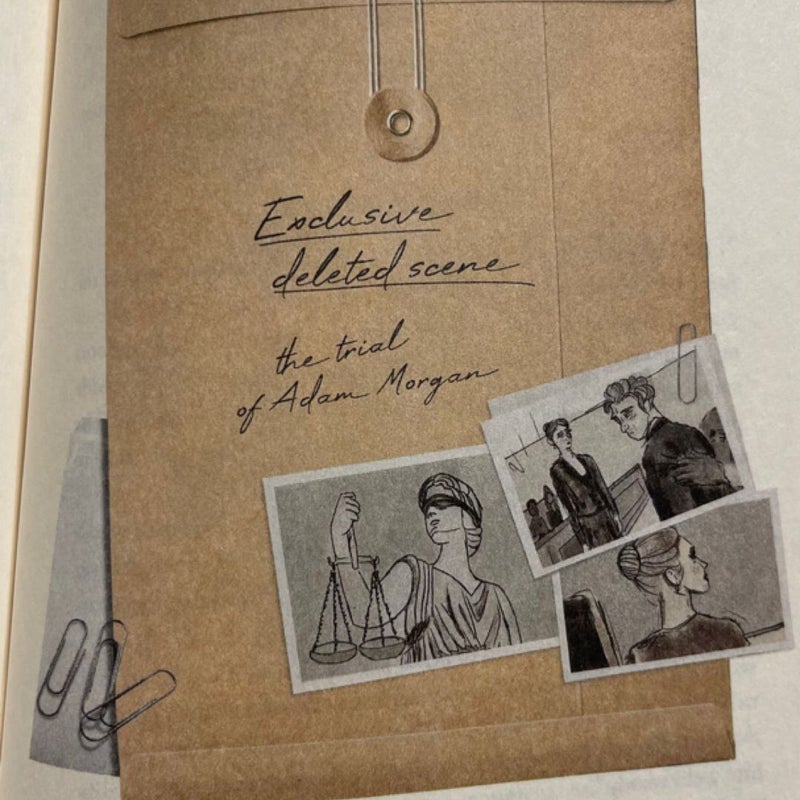 Exclusive
deleted scene
the trial
of Adam Morgan